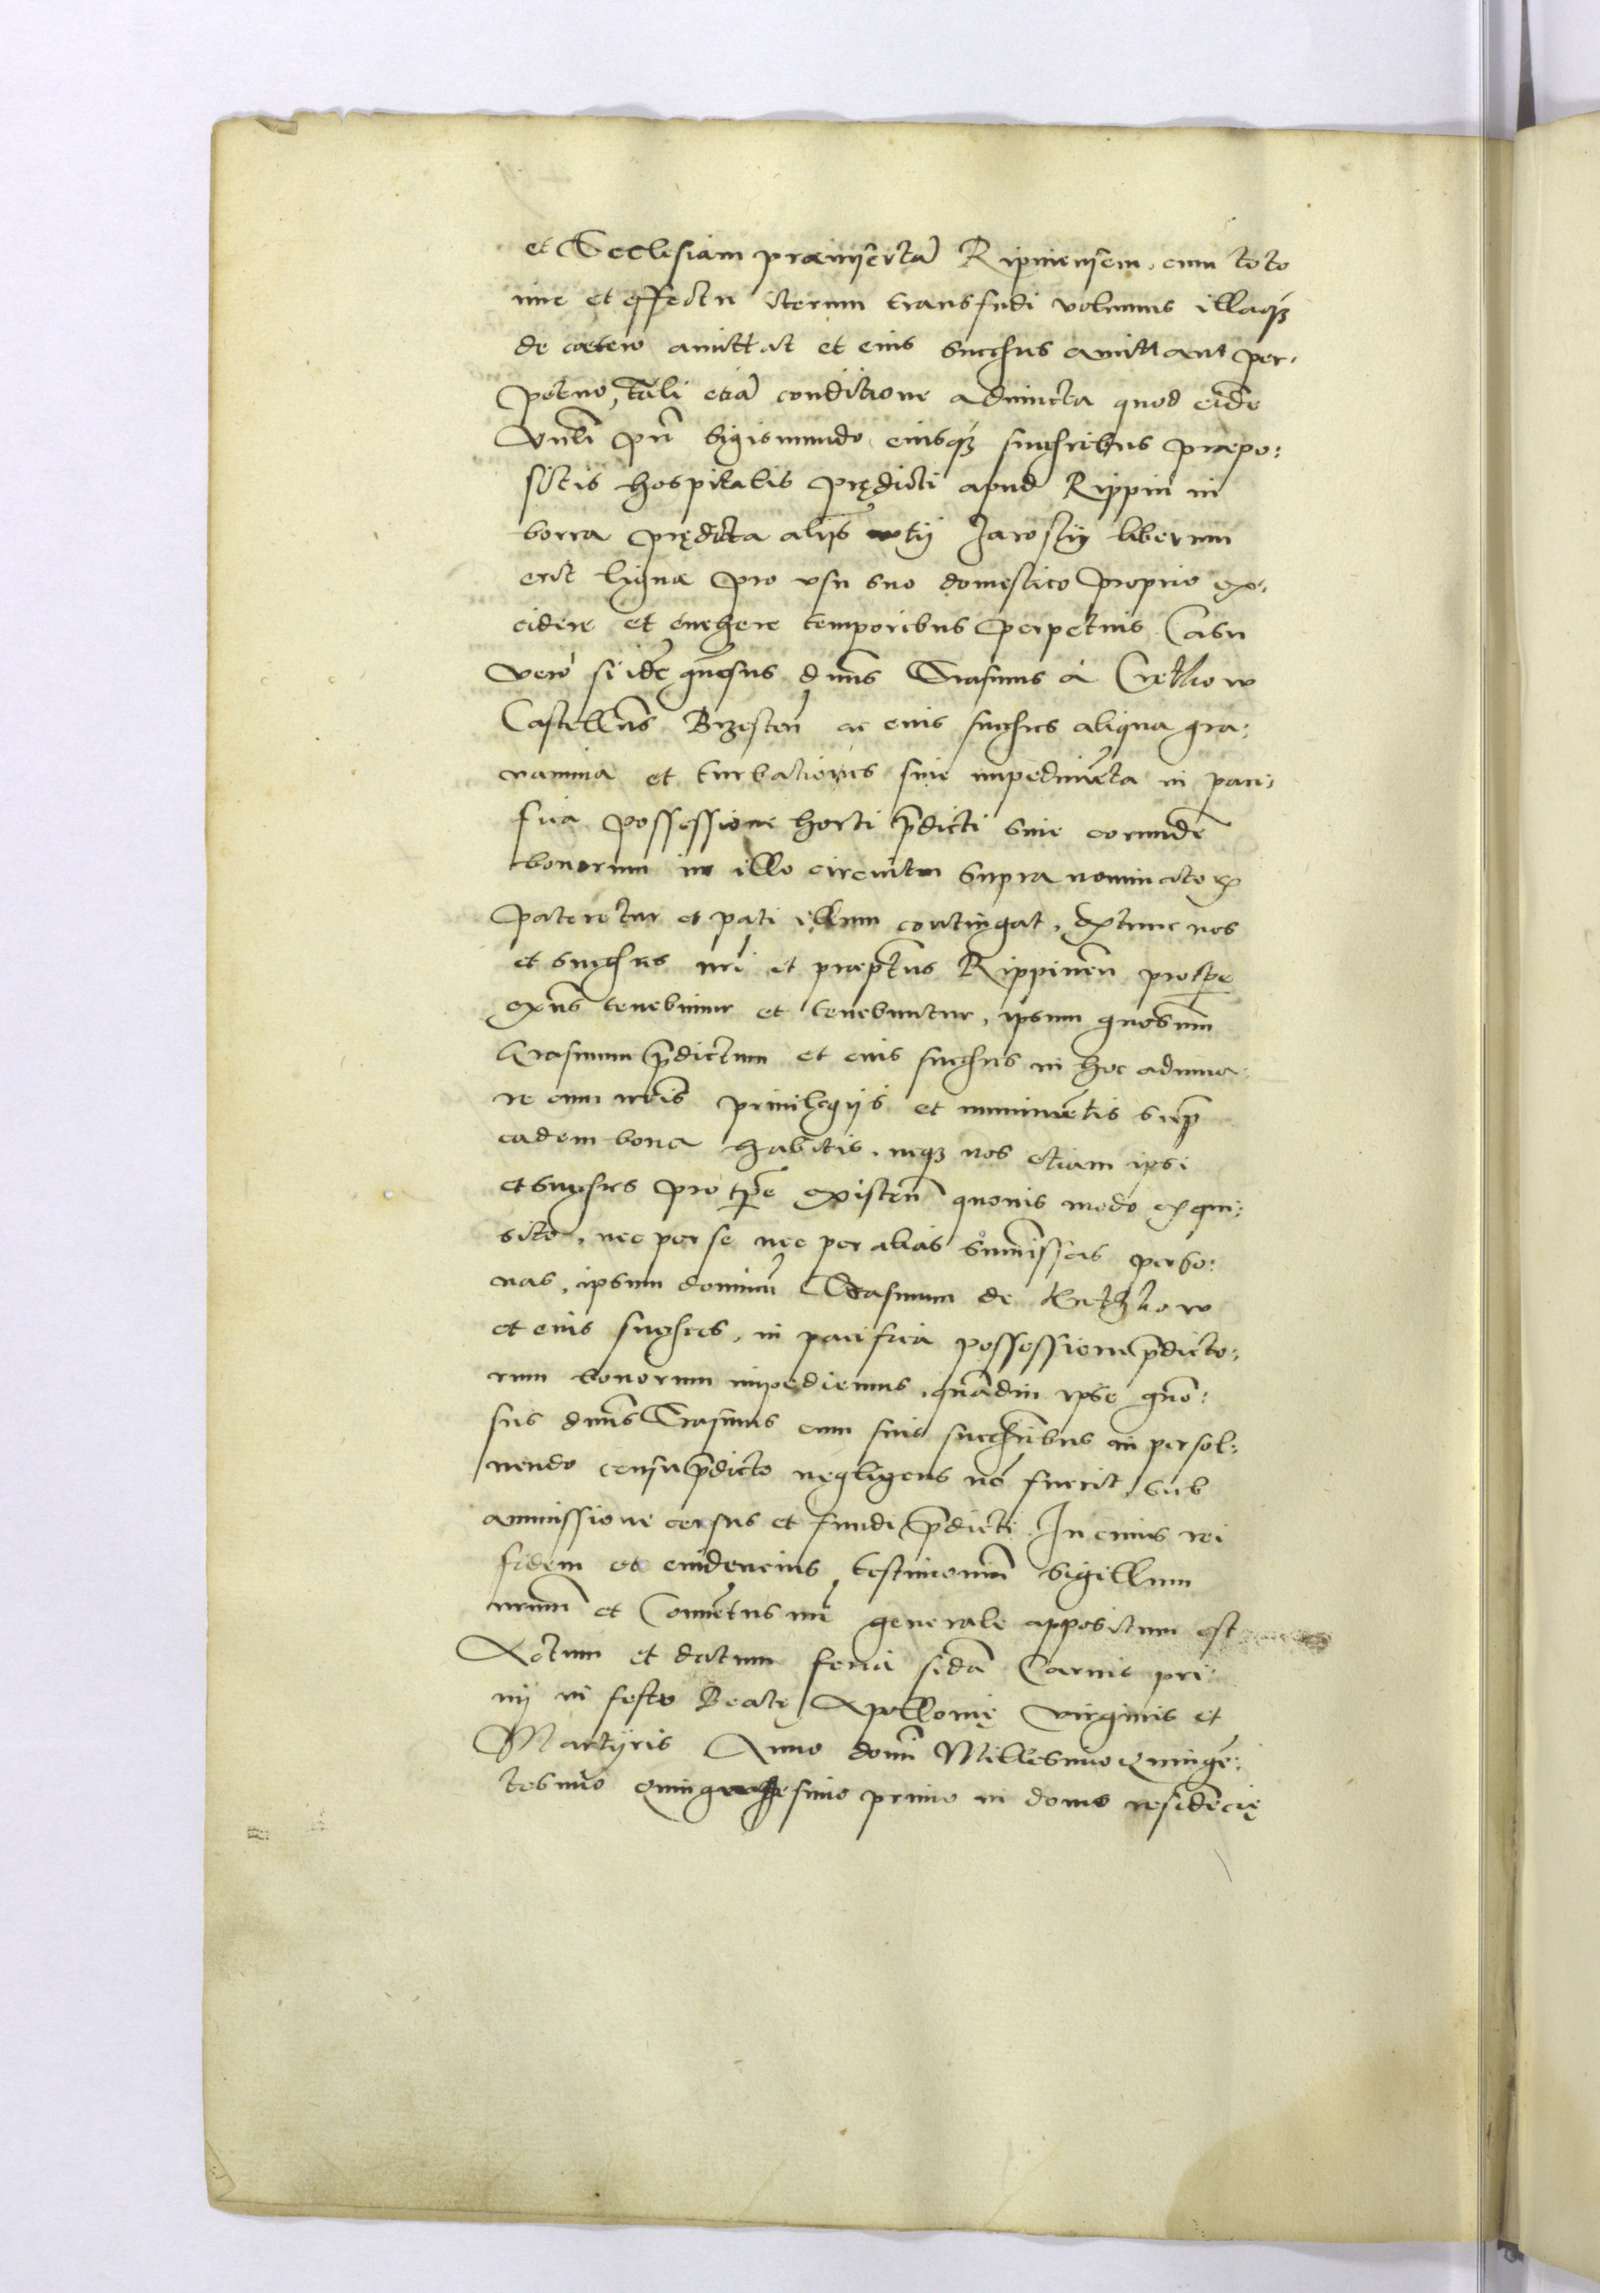 et Ecclesiam praeinsertã Ripinensem, cum toto
iure et effectu iterum transfundi volumus illaqʒ
de caetero amittat et eius succesꝰ amittant per,
petuo, tali etiã conditione adiuncta quod eidẽ
Vnlĩ pñ Sigismundo eiusqʒ succesribus praepo:
sitis hospitalis prędicti apud Rippin in
borra prędicta alijs Jarosty liberum
erit ligna pro vsu suo domestico proprio ex,
cidere et euehere temporibus perpetuis. Casu
vero si idẽ gñosus dñus Erasmus à Cretkow
Castellñs Brzesteñ ac eius succesres aliqua gra:
uamina et turbationes siue impedimẽta in paci,
fica possessione horti p̃dicti siue eorundẽ
bonorum in illo circuitu supra nominatoꝝ
pateretur et pati illum contingat, extunc nos
et succesres nrĩ et praeptus Rippineñ pro tpe
exñs tenebimur et tenebuntur, ipsum gnosum
Erasmum p̃dictum et eius succesres in hoc adiuua
re cum nrĩs priuilegijs et munimẽtis sup̃
eadem bona habitis, neqʒ nos etiam ipsi
et succesres pro tpẽ existeñ quouis modo exqui:
sito, nec per se nec per alias summissas perso:
nas, ipsum dominũ Erasmum de Kretzkow
et eius succesres, in pacifica possessione p̃dicto:
rum bonorum impediemus, quãdiu ipse gño:
sus dñus Erasmus cum suis succesribus in persol:
uendo censu p̃dicto negligens nõ fuerit, sub
ammissione census et fundi p̃dicti. In cuius rei
fidem et euidencius testimoniũ Sigillum
nrum et Conuẽtus nrĩ generale appositum est
Actum et datum feria sĩda Carnis pri,
uij in festo Beatę Apollonię virginis et
Martÿris Anno domĩ Millesimo Quingẽ:
tesimo primo in domo residẽcię